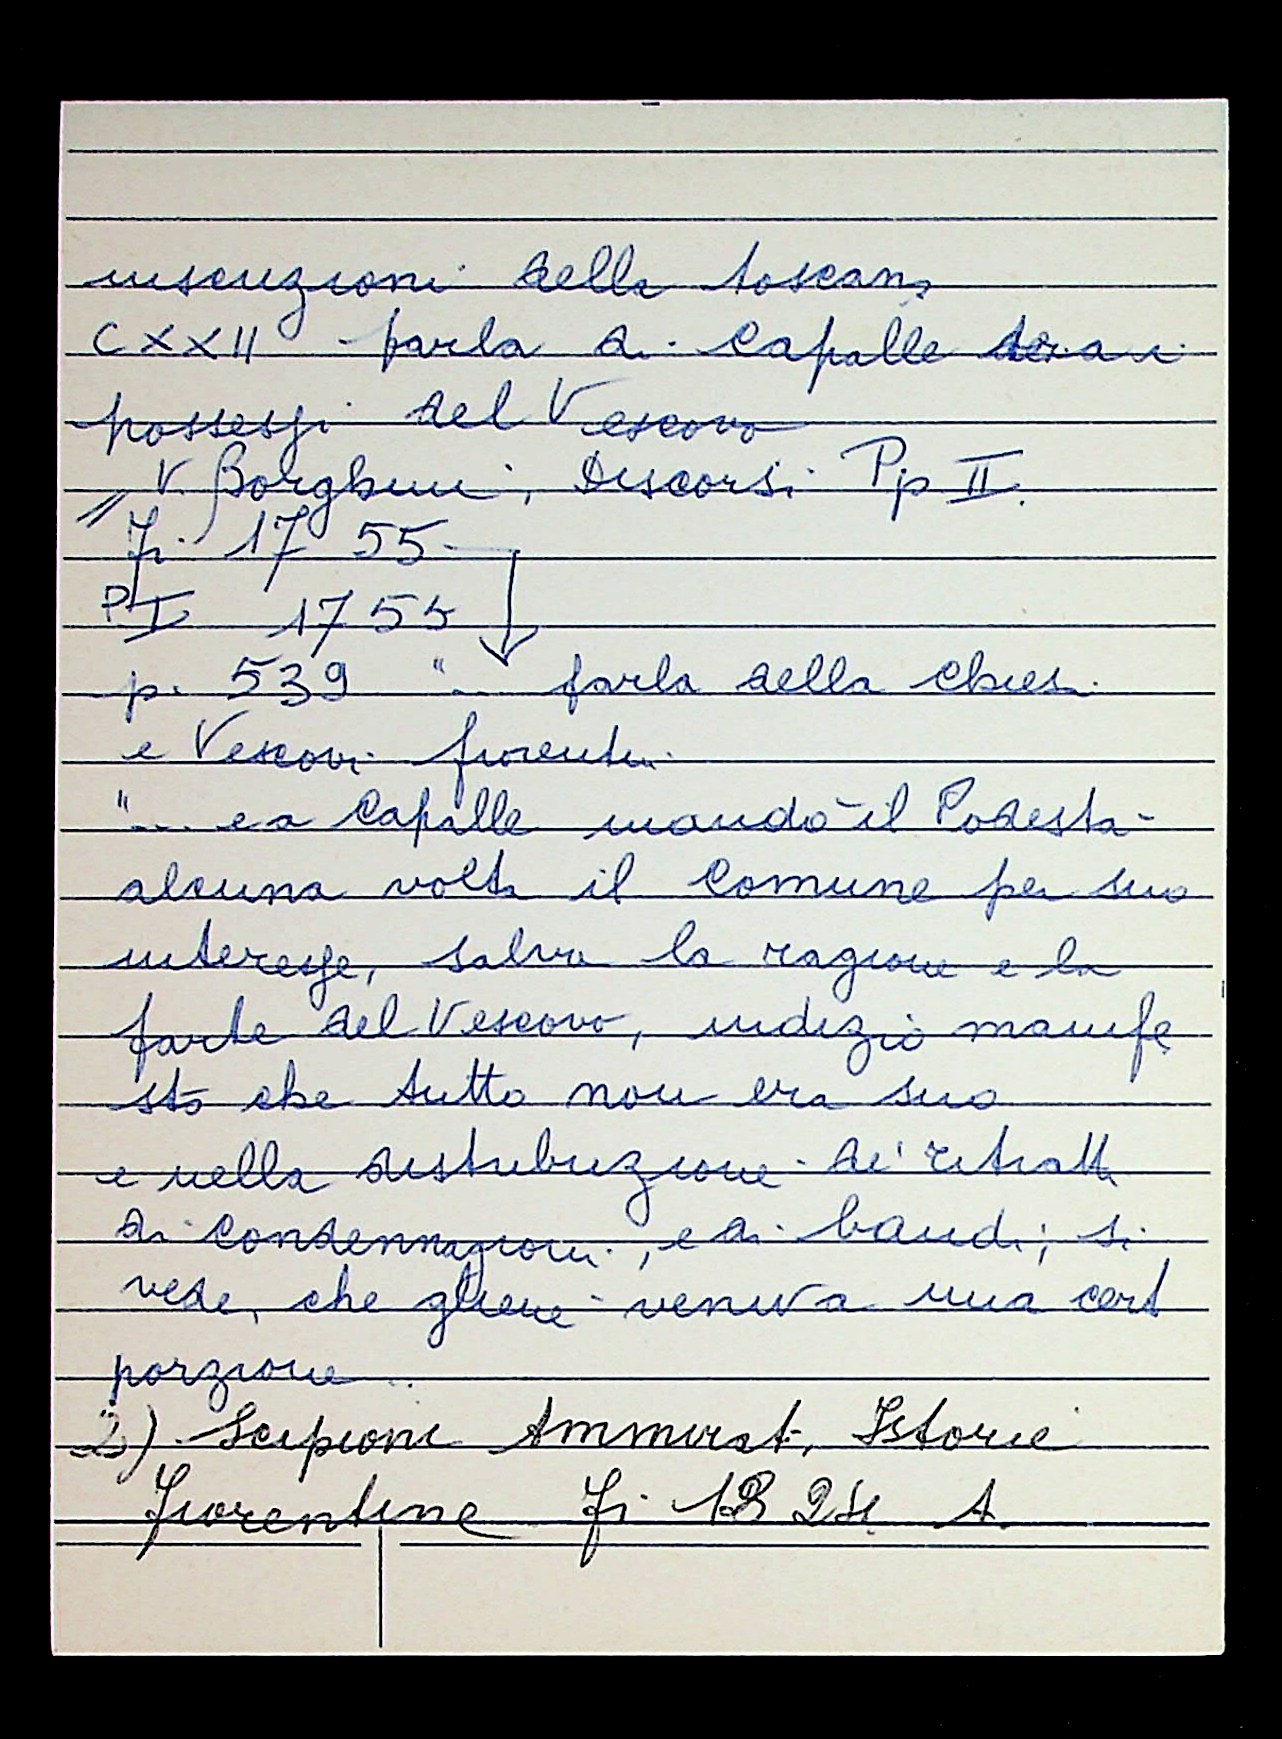 inscrizioni della toscana
CXXII - parla di Capalle
possessi del Vescovo
V. Borghini, Discorsi Pp II.
Fi. 17 55
P I 1754
p. 539 "... parla della chiesa
e Vescovi fiorentini
"... e a Capalle mandò il Podestà
alcuna volta il Comune per suo
interesse, salva la ragione e la
parte del Vescovo, indizio manife
sto che tutto non era suo
e nella distribuzione de' ritratti
di condennagioni, e di bandi; si
vede, che gliene veniva una cert
porzione ..
2) Scipione Ammirat. Istorie
Fiorentine Fi. 1824